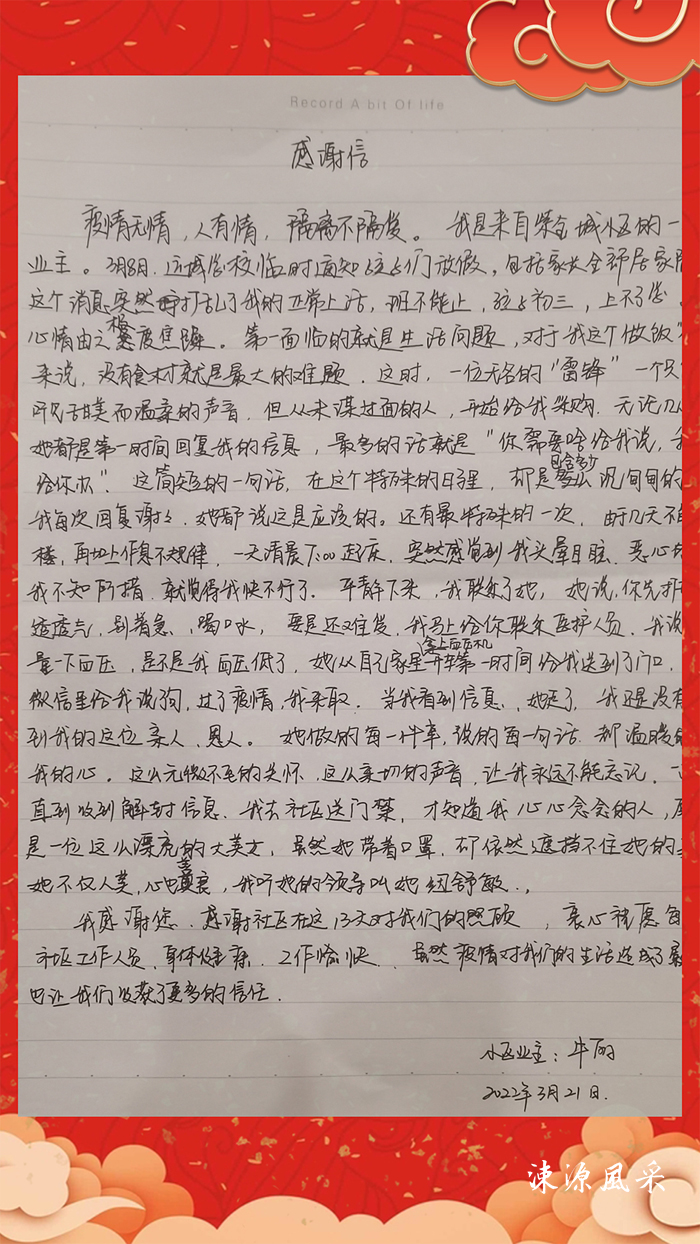 Record A bit Of life
感谢信
疫情无情，人有情，隔离不隔爱。我是来自紫金城小区的一
业主。3月8日，运城学校临时通知孩子们放假，包括家长全部居家隔
这个消息突然打乱了我的正常生活，班不能上，孩子初三，上不了学，
心情由之极度焦躁。第一面临的就是生活问题，对于我这个做饭
来说，没有食材就是最大的难题，这时，一位无名的“雷锋”一个只
听见甜美而温柔的声音，但从未谋过面的人，开始给我采购，无论几
她都是第一时间回复我的信息，最多的话就是“你需要啥给我说，我
给你办”。这简短的一句话，在这个特殊的日子里，却是包含多少沉甸甸的
我每次回复谢谢，她都说这是应该的。还有最特殊的一次，由于几天不
楼，再加上作息不规律，一天清晨7:00起床，突然感觉到我头晕目眩，恶心
我不知所措，就觉得我快不行了，平静下来，我联系了她，她说，你先打
透透气，别着急，喝口水，要是还难受，我马上给你联系医护人员，我说
量一下血压，是不是我血压低了，她从自己家里拿上血压机开车第一时间给我送到了门口，
微信里给我说的，过了疫情，我来取，当我看到信息，她走了，我还是没有
到我的这位亲人，恩人。她做的每一件事，说的每一句话，都温暖
我的心。这么无微不至的关怀，这么亲切的声音，让我永远不能忘记，
直到收到解封信息，我去社区送门禁，才知道我心心念念的人，原
是一位这么漂亮的大美女，虽然她带着口罩，却依然遮挡不住她的
她不仅人美，心也善，我听她的领导叫她纽舒敏，
我感谢您，感谢社区在这13天对我们的照顾，衷心祝愿每
社区工作人员，身体健康，工作愉快，虽然疫情对我们的生活造成了
也让我们收获了更多的信任.
小区业主：牛丽
2022年3月21日.
涑源風采